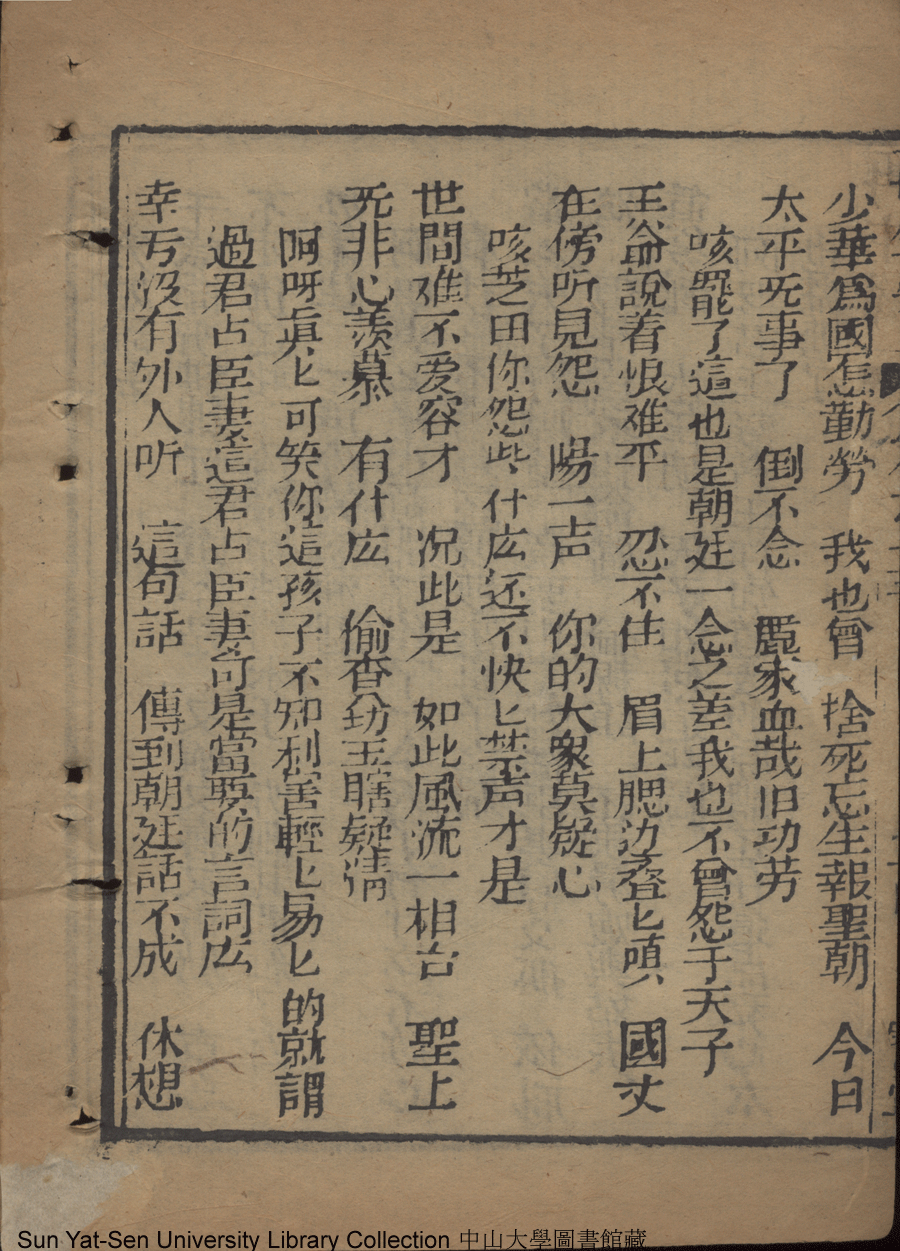 少華爲國怎勤勞　我也曾　捨死忘生報聖朝　今日
太平旡事了　倒不念　麗家血哉旧功劳
咳罷了這也是朝廷一念之差我也不曾怨于天子
王爺說着恨难平　忍不住　眉上腮边
在傍听見怨　一声　你的大衆莫疑心
咳芝田你怨此什庅还不快匕禁声才是
世間难不爱容才　况此是　如此風流一相台　聖上
旡非心羡慕　有什庅　偷香
呵呀眞匕可笑你這孩子不知利害輕匕易匕的就謂
過君占臣妻這君占臣妻可是當耍的言詞庅
幸亏没有外人听　這句話　傳到朝廷話不成　休想
Sun Yat-Sen University Library Collection 中山大學圖書館藏